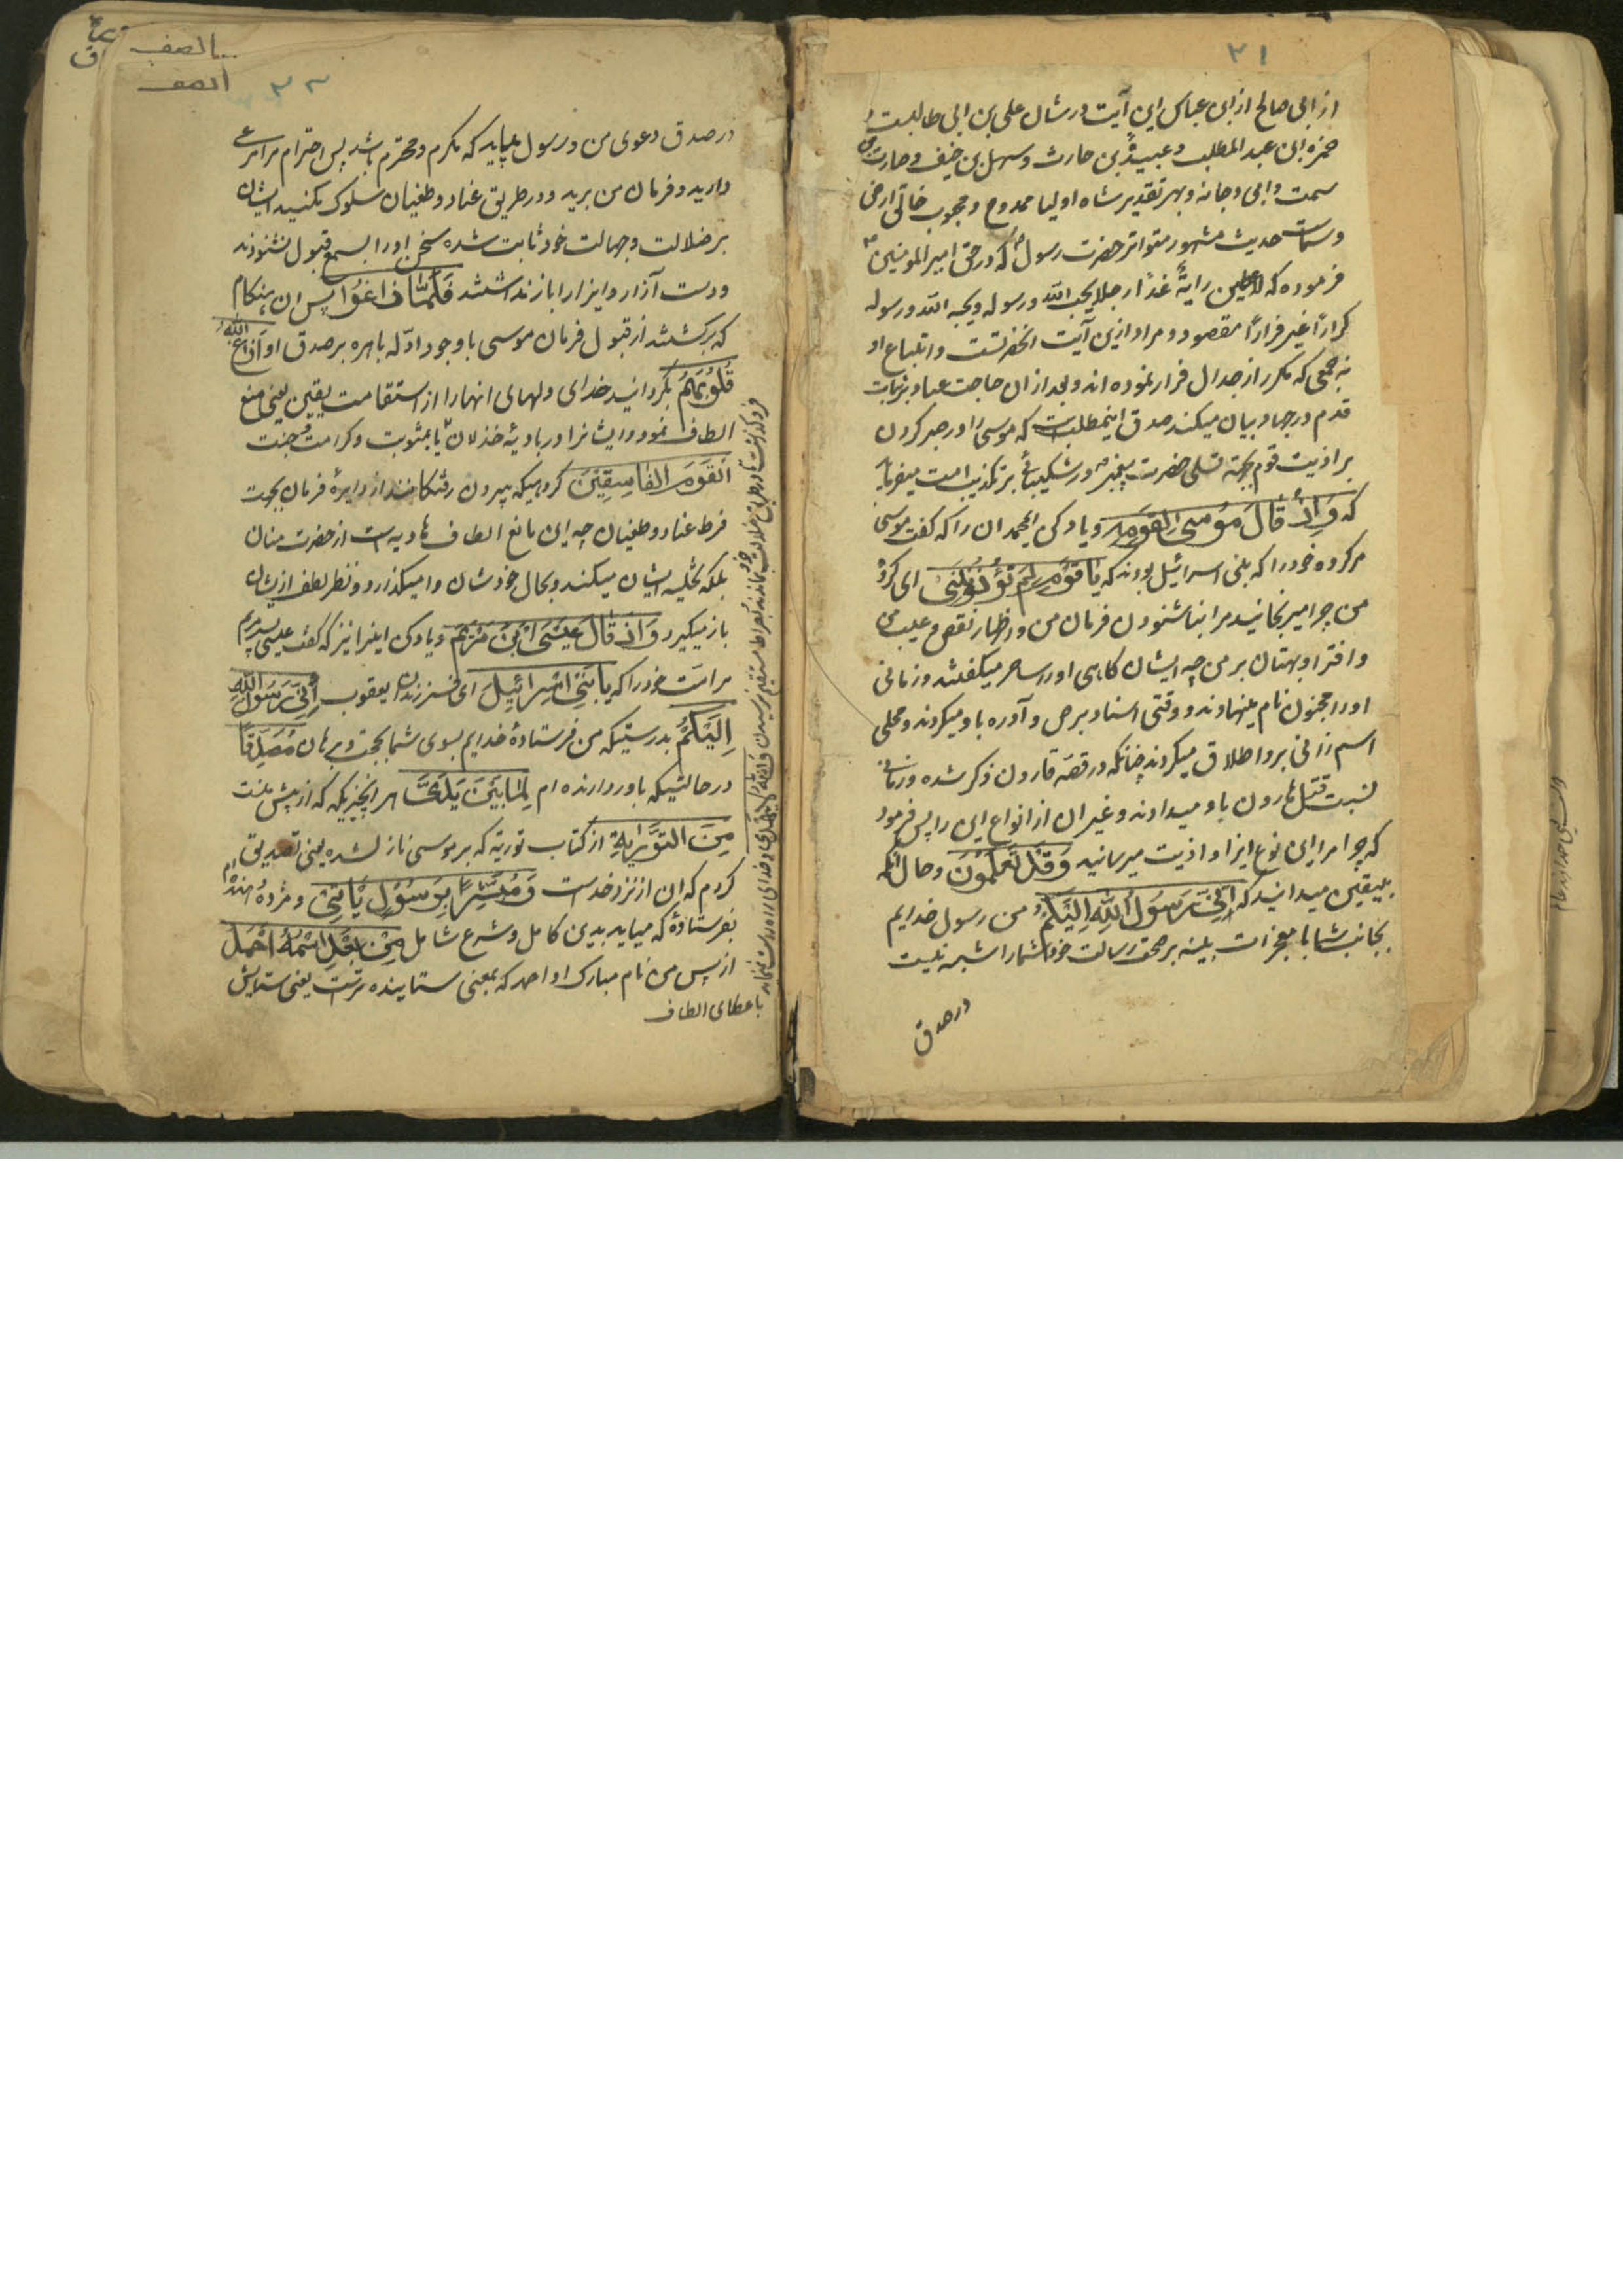 ۳۱
از ابی صالح از ابن عباس این آیت در شان علی بن ابی طالبست و
حمزه ابن عبد المطلب و عبیدة بن حارث و سهل بن حنیف و حارث بن
سمت و ابی دجانه و بهر تقدیر شاه اولیا ممدوح و محبوب خالق ارض
و سمات حدیث مشهور متواتر حضرت رسول که در حق امیر المومنین
فرموده که لاعطین رایة غدًا رجلا یحب الله و رسوله و یحبه الله و رسوله
کرارًا غیر فرارًا مقصود و مراد ازین آیت آنحضرتست و اتباع او
نه جمعی که مکرر از جدال فرار نموده اند و بعد ازان حاجت عباد بر ثبات
قدم در جهاد بیان میکند صدق اینمطلب است که موسی را در صبر کردن
بر اذیت قوم بجهة تسلی حضرت پیغمبر و شکیبائی بر تکذیب امت میفرماید
که وَاِذْ قَالَ مُوسٰی لِقَوْمِهِ و یاد کن ایمحمد ان را که گفت موسی
مر گروه خود را که بنی اسرائیل بودند که یَا قَوْمِ لِمَ تُؤْذُونَنِی ای گروه
من چرا میرنجانید مرا بناشنودن فرمان من و در اظهار نقص و عیب من
و افترا و بهتان بر من چه ایشان کاهی او را ساحر میگفتند و زمانی
او را مجنون نام مینهادند و وقتی اسناد برص و آدره باو میکردند و محلی
اسم زانی برو اطلاق میکردند چنانکه در قصّه قارون ذکر شده و زمانی
نسبت قتل هارون باو میدادند و غیر ان از انواع ایذا پس فرمود
که چرا مرا این نوع ایزا و اذیت میرسانید وَقَدْ تَعْلَمُونَ و حال آنکه
بیقین میدانید که اَنِّی رَسُولُ اللّٰهِ اِلَیْکُمْ من رسول خدایم
بجانب شما با معجزات بینه بر صحت رسالت خود شما را شبه نیست
در صدق
الصف
الصف
۳۲
در صدق دعوی من و رسول میباید که مکرم و محترم باشد پس احترام مرا مرعی
دارید و فرمان من برید و در طریق عناد و طغیان سلوک مکنید ایشان
بر ضلالت و جهالت خود ثابت شده سخن او را بسمع قبول نشنودند
و دست آزار و ایزا را باز نداشتند فَلَمَّا زَاغُوا پس ان هنکام
که برکشتند از قبول فرمان موسی با وجود ادّله باهره بر صدق او اَزَاغَ اللّٰهُ
قُلُوبَهُمْ بگردانید خدای دلهای انها را از استقامت یقین یعنی منع
الطاف نمود و ایشانرا در بادیهٔ خذلان یا بمثوبت و کرامت و جنت
اَلْقَوْمَ الْفَاسِقِینَ کروهیکه بیرون رفتکانند از دایرهٔ فرمان بجهت
فرط عناد و طغیان چه این مانع الطاف هادیه است از حضرت منان
بلکه تخلیه ایشان میکند و بحال خودشان وامیکذارد و نظر لطف ازیشان
باز میگیرد وَاِذْ قَالَ عِیسَی ابْنُ مَرْیَمَ و یاد کن اینرا نیز که گفت عیسی پسر مریم
مر امت خود را که یَا بَنِی اِسْرَائِیلَ ای فرزندان یعقوب اِنِّی رَسُولُ اللّٰهِ
اِلَیْکُمْ بدرستیکه من فرستادهٔ خدایم بسوی شما بحجت و برهان مُصَدِّقًا
در حالتیکه باور دارنده ام لِمَا بَیْنَ یَدَیَّ مر انچیزیکه که از پیش منست
مِنَ التَّوْرٰیةِ از کتاب توریة که بر موسی نازل شده یعنی تصدیق
کردم که ان از نزد خداست وَمُبَشِّرًا بِرَسُولٍ یَأْتِی و مژده دهنده ام
بفرستادهٔ که میاید بدین کامل و شرع شامل مِنْ بَعْدِی اسْمُهُ اَحْمَدُ
از پس من نام مبارک او احمد که بمعنی ستاینده ترست یعنی ستایش
با عطای الطاف